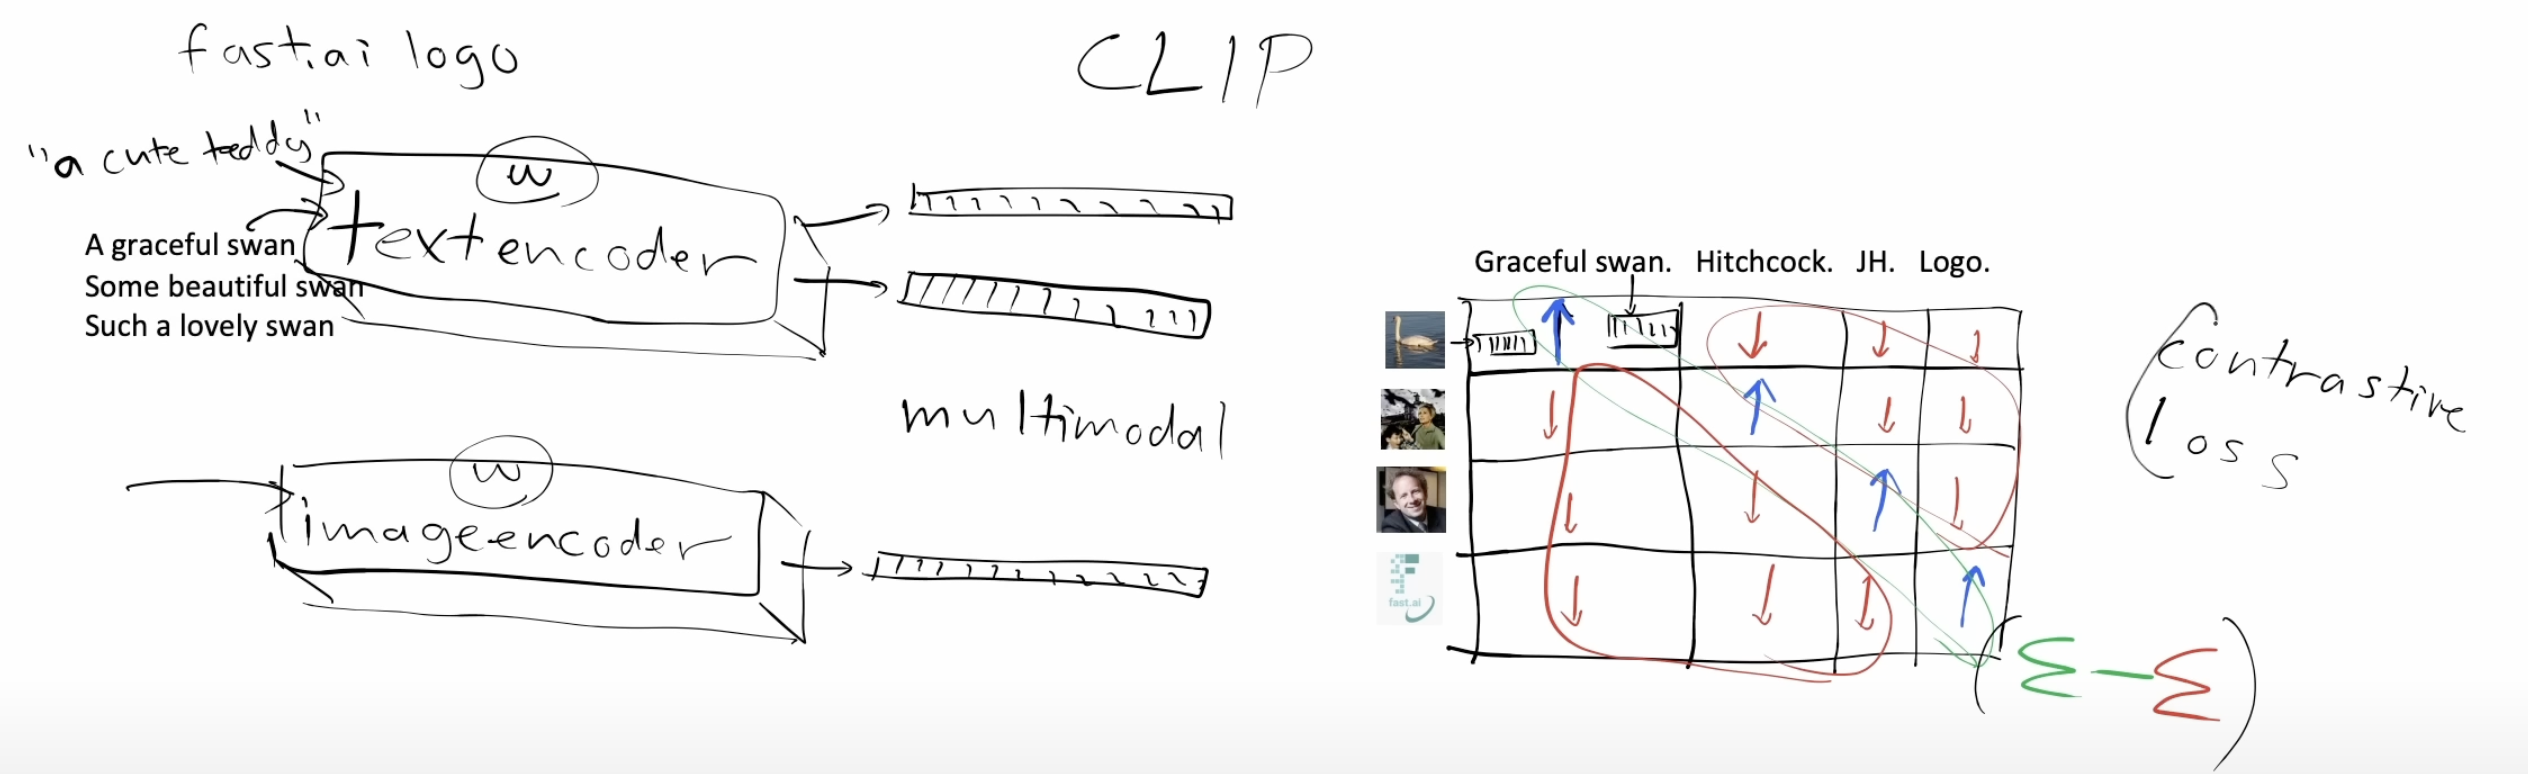 fast.ai logo
CLIP
"a cute teddy"
w
textencoder
A graceful swan
Some beautiful swan
Such a lovely swan
multimodal
w
imageencoder
Graceful swan. Hitchcock. JH. Logo.
fast.ai
Contrastive
loss
(Σ-Σ)